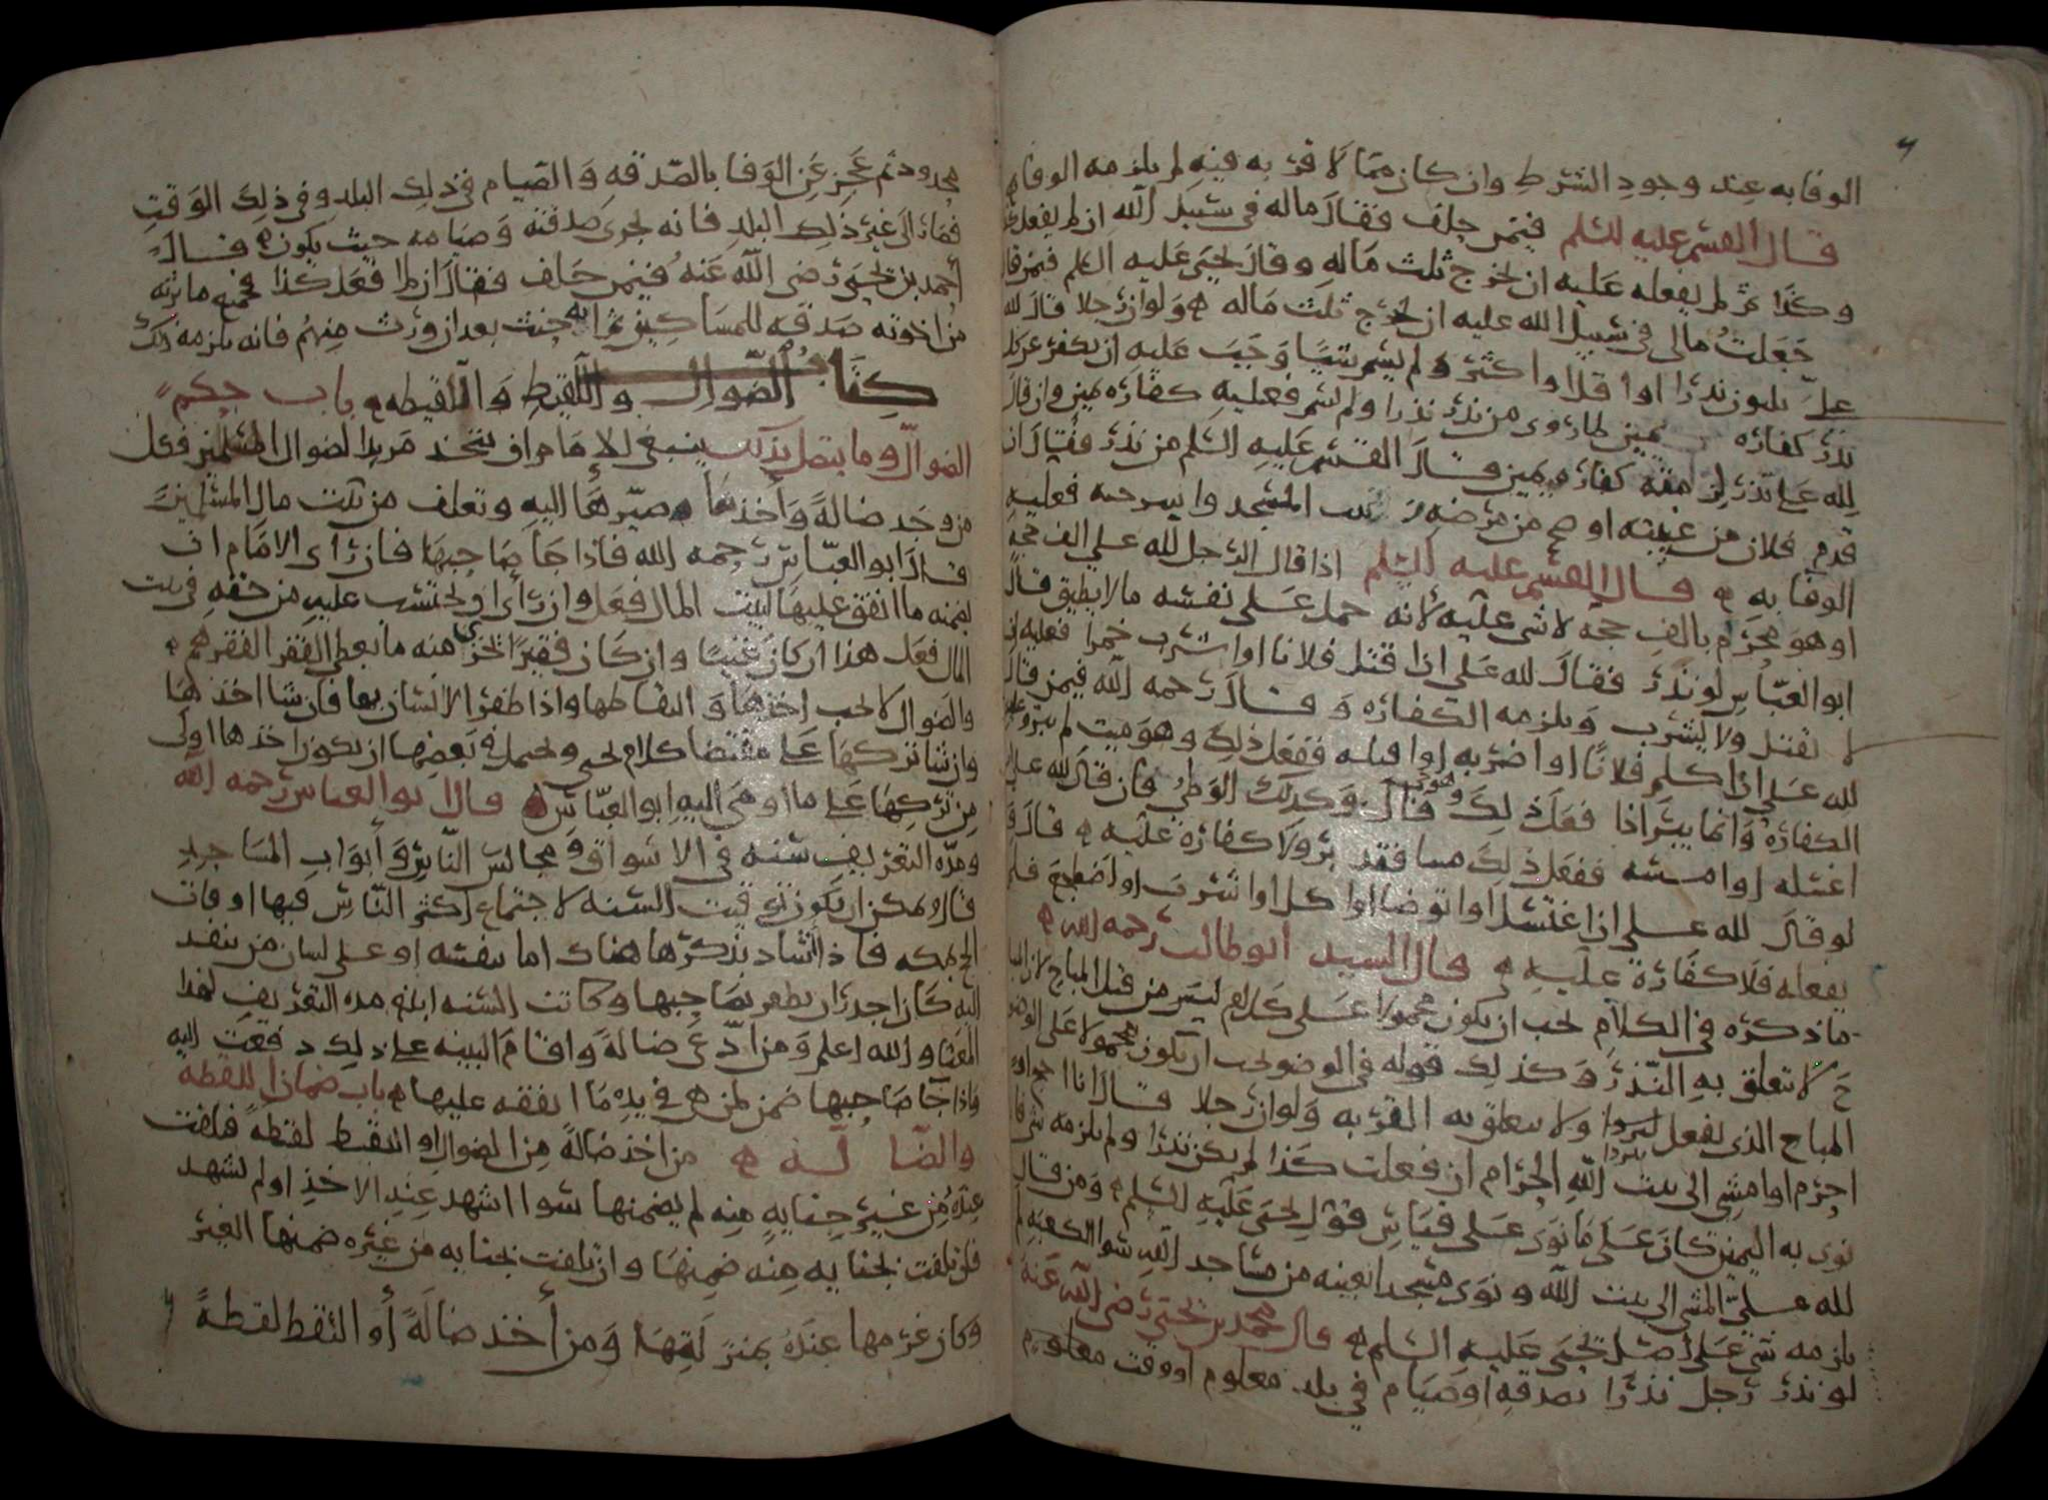 الوفا به عند وجود الشرط وان كان مما لا قربه فيه لم يلزمه الوفا به
قال القسم عليه السلم فيمن حلف فقال ماله في سبيل الله ان لم يفعل كذا
وكذا ثم لم يفعله عليه ان يخرج ثلث ماله وقال يحيى عليه السلم فيمن قال
جعلت مالى في سبيل الله عليه ان يخرج ثلث ماله ولو ان رجلا قال لله
على ثلثون نذرا او اقل او اكثر ولم يسم شيئا وجب عليه ان يكفر عن كل
نذر كفاره يمين لما روى من نذر نذرا ولم يسم فعليه كفاره يمين وان قال
لله على نذر لزمته كفاره يمين قال القسم عليه السلم من نذر فقال ان
قدم فلان من غيبته او صح من مرضه المسجد واسرحه فعليه
الوفا به قال القسم عليه السلم اذا قال الرجل لله على الف حجه
او هو محرم بالف حجه لا شى عليه لانه حمل على نفسه ما لا يطيق قال
ابو العباس لو نذر فقال لله على ان اقتل فلانا او اشرب خمرا فعليه ان
لا يقتل ولا يشرب ويلزمه الكفاره وقال رحمه الله فيمن قال
لله على ان اكلم فلانا او اضربه او اقبله ففعل ذلك وهو ميت لم يبر وعليه
الكفاره وانما يبر اذا فعل ذلك وهو حى قال وكذلك الوطى فان قال لله على
اغسله او امسه ففعل ذلك ميتا فقد بر ولا كفارة عليه قال
لو قال لله على ان اغتسل او اتوضا او اكل او اشرب او اضطجع فلم
يفعله فلا كفارة عليه قال السيد ابو طالب رحمه الله
ما ذكره في الكلام يجب ان يكون محمولا على كلام ليس من قبل المباح لان المباح
لا تعلق به النذر وكذلك قوله في الوضو يجب ان يكون محمولا على الوضو
المباح الذى يفعل تبردا ولا يتعلق به القربه ولو ان رجلا قال انا احج او
احرم او امشى الى بيت الله الحرام ان فعلت كذا لم يكن نذرا ولم يلزمه شى فان
نوى به اليمين كان على ما نوى على قياس قول يحيى عليه السلم ومن قال
لله على المشى الى بيت الله ونوى مسجدا بعينه من مساجد الله سوا الكعبه لم
يلزمه شى على اصل يحيى عليه السلم قال محمد بن يحيى رضى الله عنه
لو نذر رجل نذرا بصدقه او صيام في بلد معلوم او وقت معلوم
محدود ثم عجز عن الوفا بالصدقه والصيام في ذلك البلد وفى ذلك الوقت
فصار الى غير ذلك البلد فانه يجزى صدقته وصيامه حيث يكون قال
احمد بن يحيى رضى الله عنه فيمن حلف فقال ان لم افعل كذا فجميع ما يرثه
من اخوته صدقه للمساكين ثم انه حنث بعد ان ورث منهم فانه يلزمه ذلك
كتاب الضوال واللقيط واللقيطه باب حكم
الضوال وما يتصل بذلك ينبغى للامام ان يتخذ مربدا لضوال المسلمين فكل
من وجد ضالة واخذها صيرها اليه وتعلف من بيت مال المسلمين
قال ابو العباس رحمه الله فاذا جا صاحبها فان رآى الامام ان
يضمنه ما انفق عليها لبيت المال فعل وان رأى ان يحتسب عليه من حقه في بيت
المال فعل هذا ان كان غنيا وان كان فقيرا يجزى منه ما يعطى الفقرا لفقرهم
والضوال لا يجب اخذها والتقاطها واذا ظفر الانسان بها فان شا اخذها
وان شا تركها على مقتضا كلام يحيى ويحتمل في بعضها ان يكون اخذها اولى
من تركها على ما اومى اليه ابو العباس قال ابو العباس رحمه الله
ومده التعريف سنه في الاسواق ومجالس الناس وابواب المساجد
قال ويمكن ان يكون توقيت السنه لاجتماع اكثر الناس فيها اوقات
الحج بمكه فاذا انشاد بذكرها هناك اما بنفسه او على لسان من ينفد
اليه كان اجدر ان يظفر بصاحبها وكانت السنه ابلغ مده التعريف لهذا
المعنى والله اعلم ومن ادعى ضالة واقام البينه على ذلك دفعت اليه
واذا جا صاحبها ضمن لمن هى في يده ما انفقه عليها باب ضمان اللقطه
والضالــه من اخذ ضالة من الضوال او التقط لقطة فتلفت
عنده من غير جنايه منه لم يضمنها سوا اشهد عند الاخذ او لم يشهد
فان تلفت بجنايه منه ضمنها وان تلفت بجنايه من غيره ضمنها الغير
وكان غرمها عنده بمنزلتها ومن أخذ ضالة أو التقط لقطة